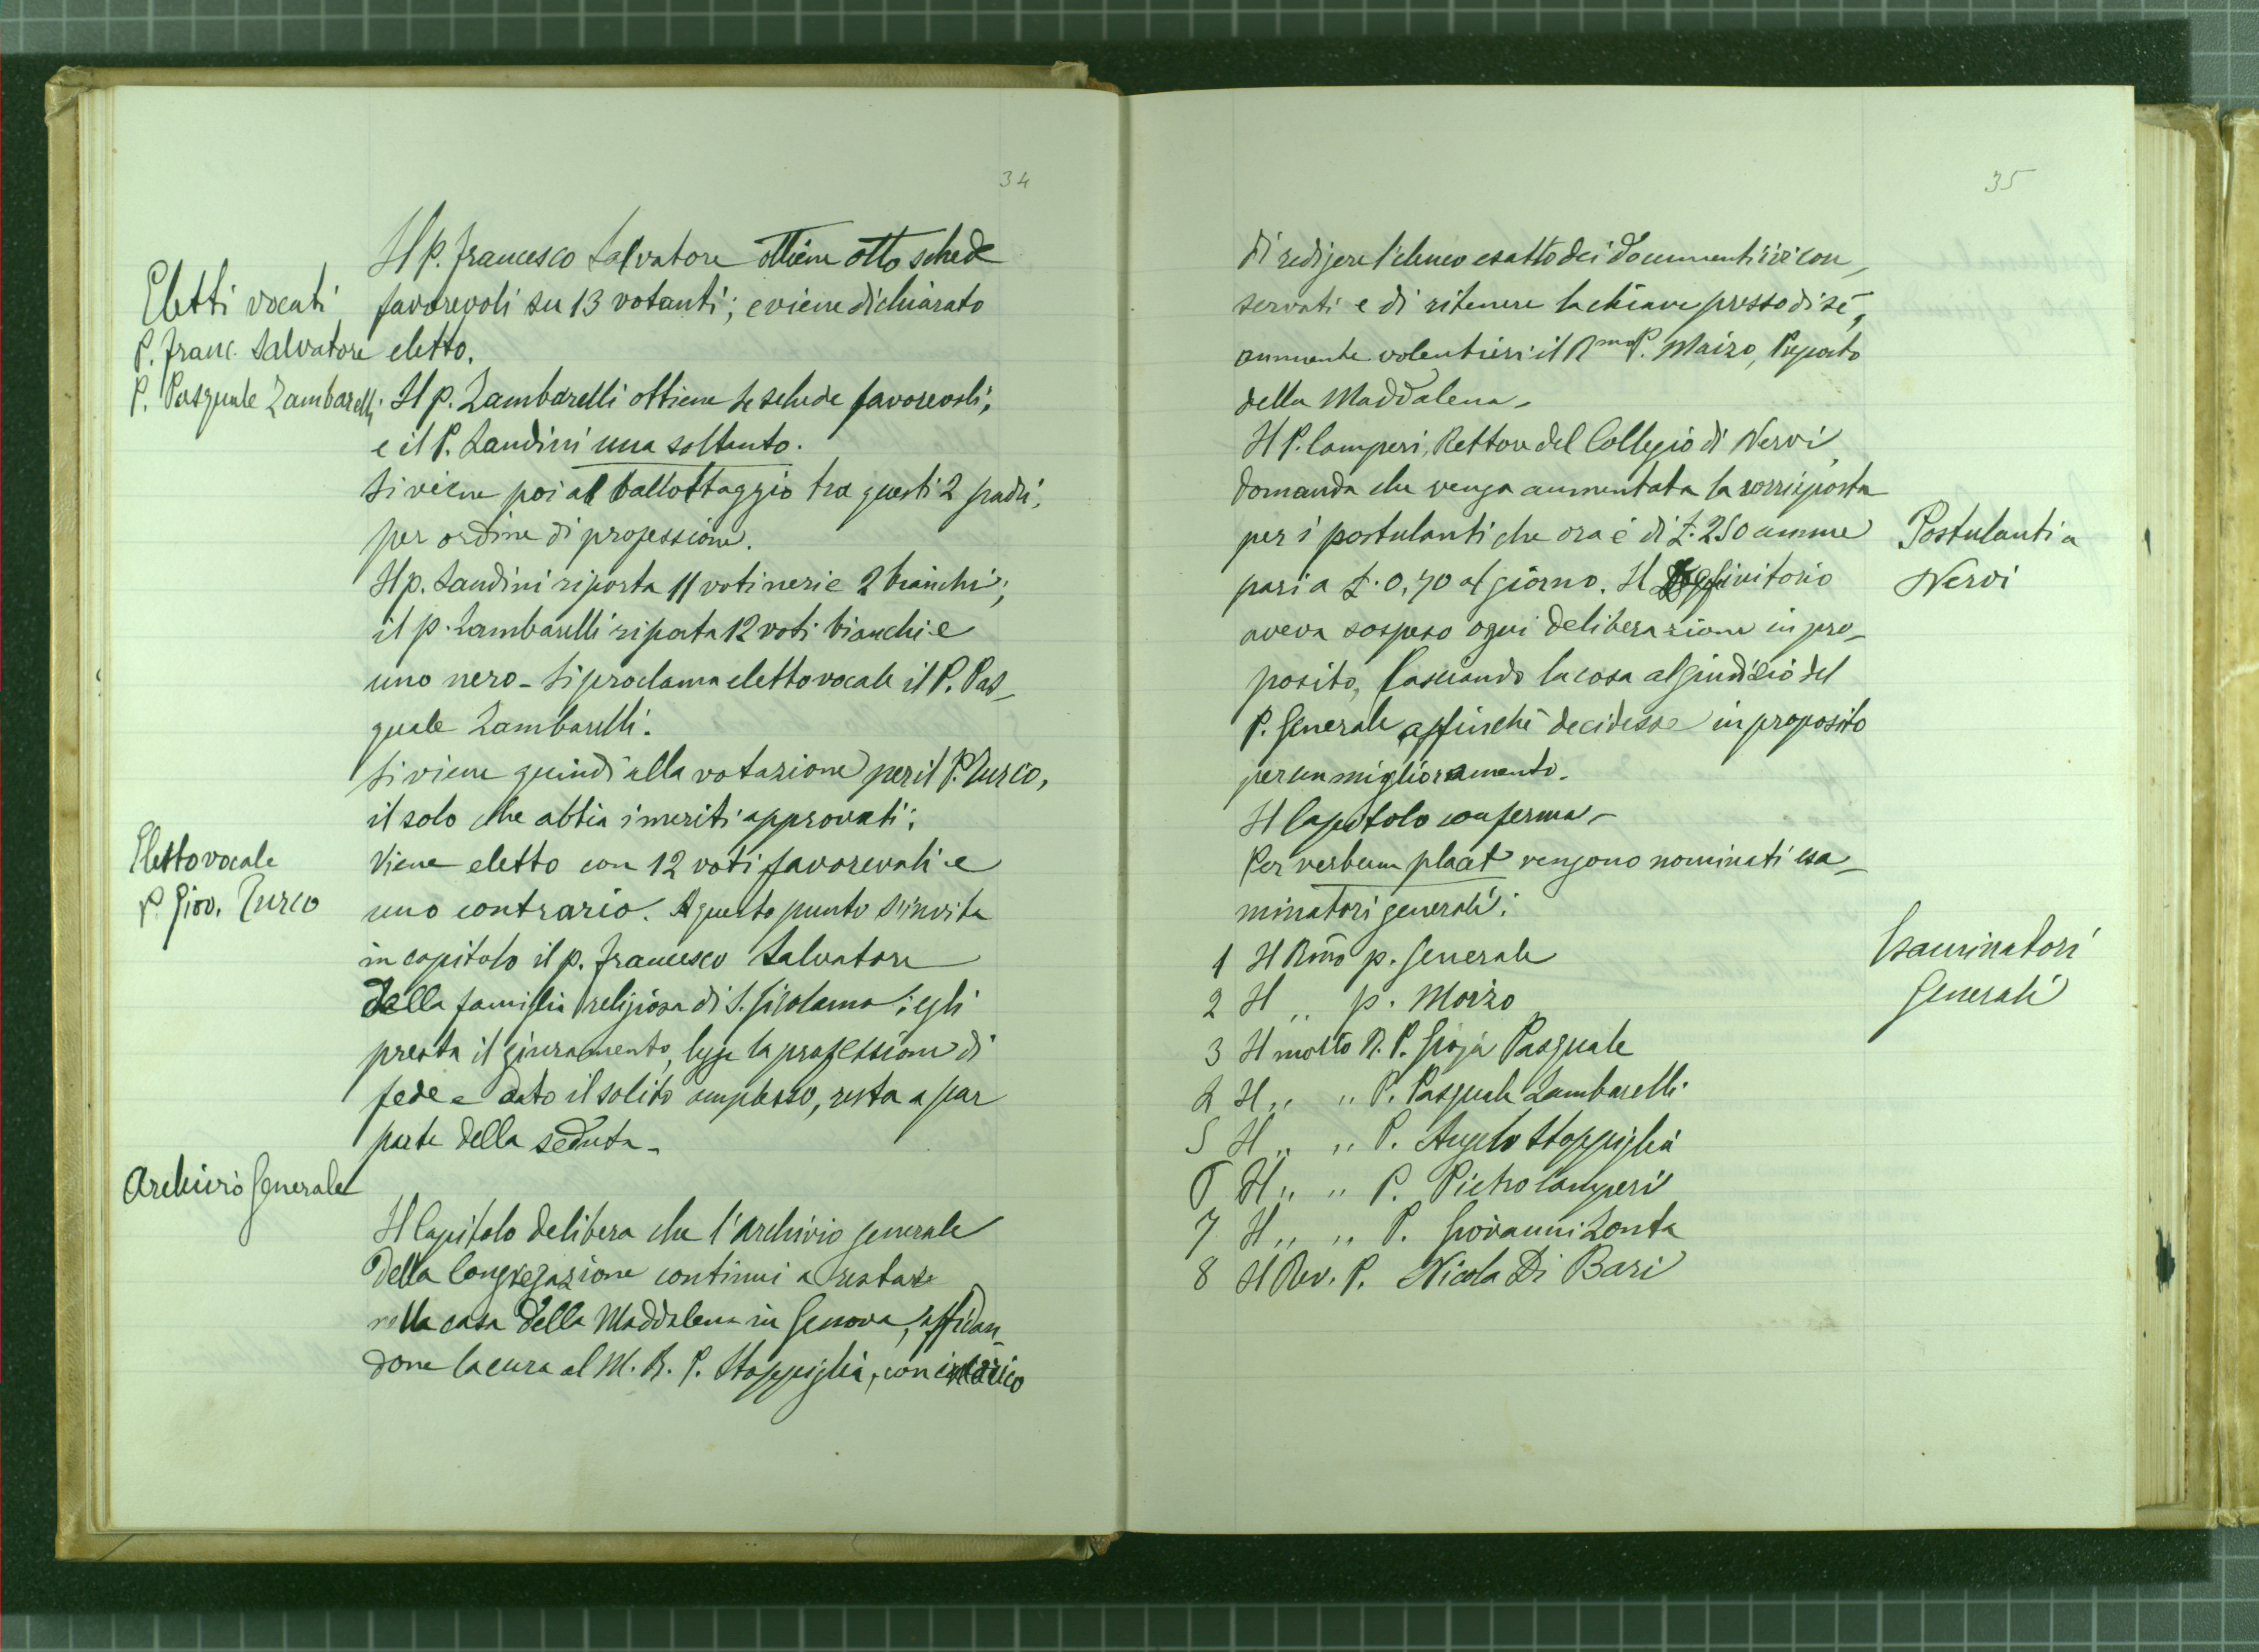 34
Il p. Francesco Salvatore ottiene otto schede
Eletti vocali
favorevoli su 13 votanti; e viene dichiarato
P. Franc. Salvatore
eletto.
P. Pasquale Zambarelli
Il p. Zambarelli ottiene 4 schede favorevoli,
e il P. Landini una soltanto.
Si viene poi al ballottaggio tra questi 2 padri,
per ordine di professione.
Il p. Landini riporta 11 voti neri e 2 bianchi;
il p. Zambarelli riporta 12 voti bianchi e
uno nero - Si proclama eletto vocale il P. Pas-
quale Zambarelli.
Si viene quindi alla votazione per il P. Turco,
il solo che abbia i meriti approvati;
Eletto vocale
Viene eletto con 12 voti favorevoli e
P. Giov. Turco
uno contrario. A questo punto s'invita
in capitolo il p. Francesco Salvatore
della famiglia religiosa di S. Girolamo; egli
presta il giuramento, legge la professione di
fede e dato il solito amplesso, resta a far
parte della seduta -
Archivio Generale
Il Capitolo delibera che l'archivio generale
della Congregazione continui a restare
nella casa della Maddalena in Genova, affidan-
done la cura al M. R. P. Stoppiglia, con incarico
35
di redigere l'elenco esatto dei documenti ivi con-
servati e di ritenere la chiave presso di sè,
annuente volentieri il Rmo P. Moizo, Preposto
della Maddalena -
Il P. Camperi, Rettore del Collegio di Nervi,
domanda che venga aumentata la corrisposta
per i postulanti che ora è di £. 250 annue
Postulanti a
pari a £. 0,70 al giorno. Il Definitorio
Nervi
aveva sospeso ogni deliberazione in pro-
posito, lasciando la cosa al giudizio del
P. Generale affinchè decidesse in proposito
per un miglioramento.
Il Capitolo conferma -
Per verbum placet vengono nominati esa-
minatori generali:
Esaminatori
Generali
1 Il Rmo p. Generale
2 Il ,, p. Moizo
3 Il molto R. P. Gioja Pasquale
4 Il ,, ,, P. Pasquale Zambarelli
5 Il ,, ,, P. Angelo Stoppiglia
6 Il ,, ,, P. Pietro Camperi
7 Il ,, ,, P. Giovanni Zonta
8 Il Rev. P. Nicola Di Bari